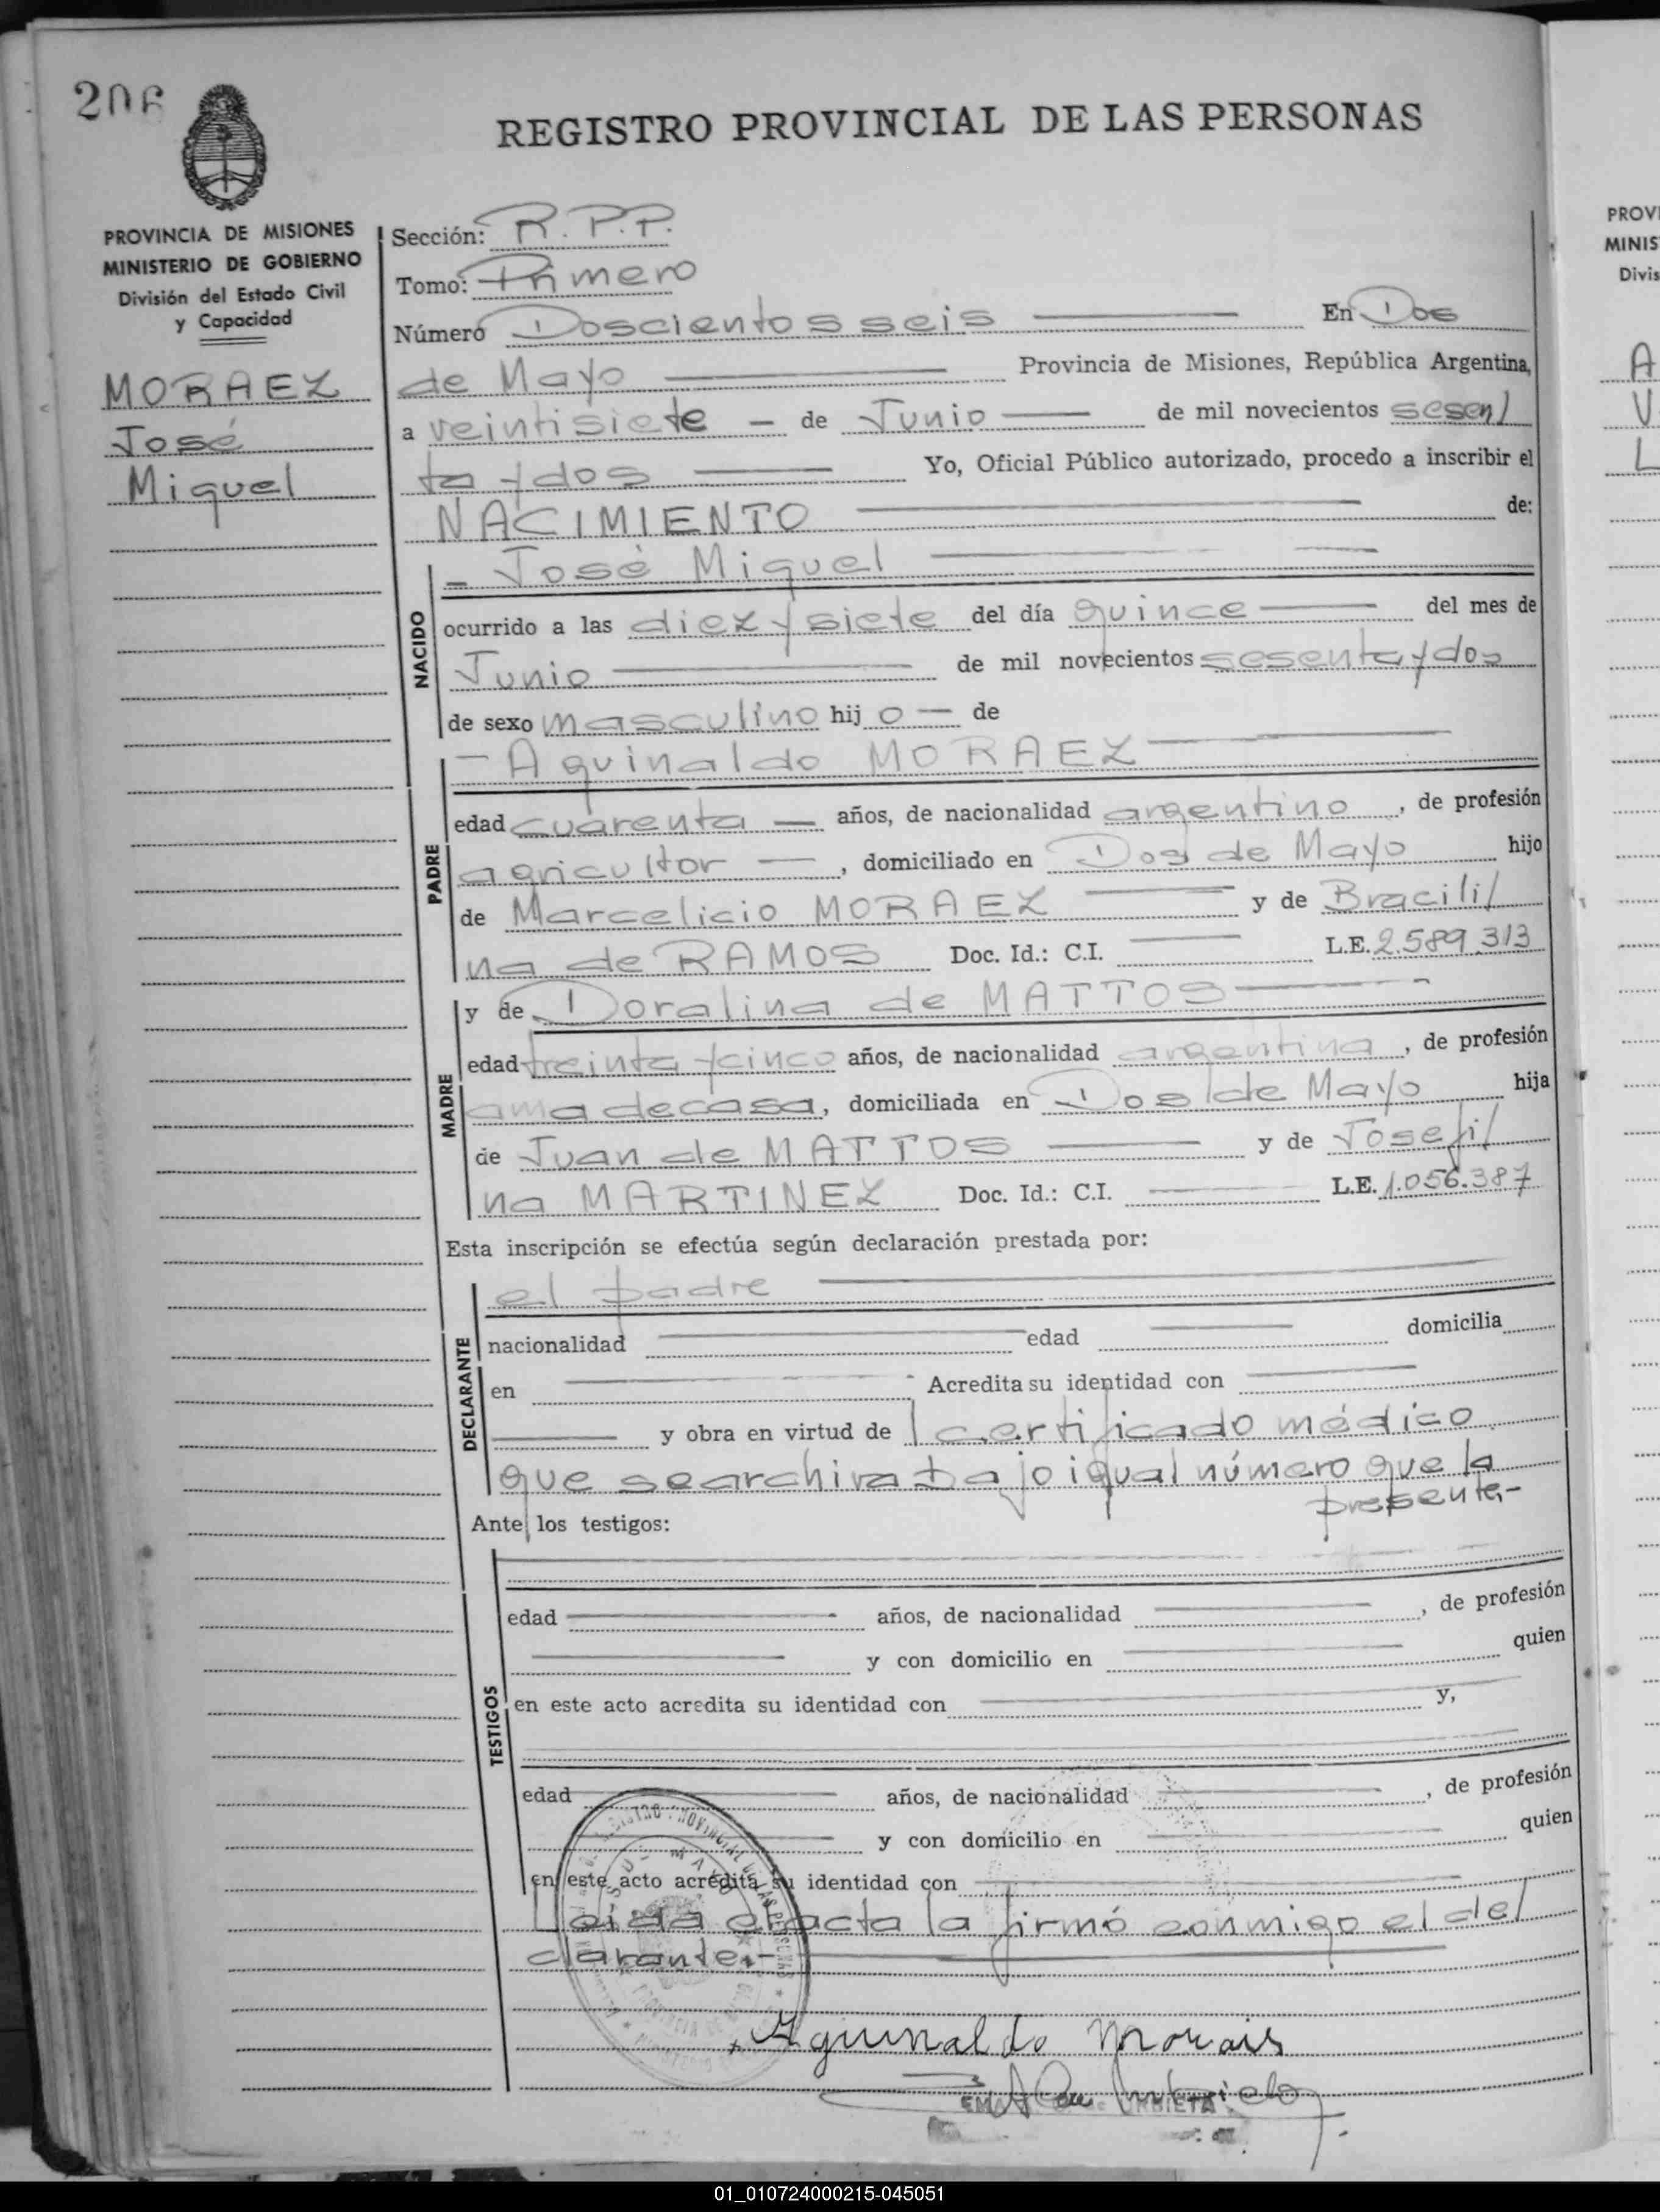 206
REGISTRO PROVINCIAL DE LAS PERSONAS
PROVINCIA DE MISIONES
MINISTERIO DE GOBIERNO
División del Estado Civil
y Capacidad
MORAEZ
José
Miguel
Sección: R.P.P.
Tomo: Primero
Número Doscientos seis En Dos
de Mayo Provincia de Misiones, República Argentina,
a veintisiete de Junio de mil novecientos sesen/
ta y dos Yo, Oficial Público autorizado, procedo a inscribir el
NACIMIENTO de:
NACIDO
José Miguel
ocurrido a las diez y siete del día quince del mes de
Junio de mil novecientos sesenta y dos
de sexo masculino hijo de
PADRE
Aguinaldo MORAEZ
edad cuarenta años, de nacionalidad argentino, de profesión
agricultor, domiciliado en Dos de Mayo hijo
de Marcelicio MORAEZ y de Bracili/
na de RAMOS Doc. Id.: C.I. L.E. 2.589.313
MADRE
y de Doralina de MATTOS
edad treinta y cinco años, de nacionalidad argentina, de profesión
ama de casa, domiciliada en Dos de Mayo hija
de Juan de MATTOS y de Josefi/
na MARTINEZ Doc. Id.: C.I. L.E. 1.056.387
Esta inscripción se efectúa según declaración prestada por:
DECLARANTE
el padre
nacionalidad edad domicilia
en Acredita su identidad con
y obra en virtud de certificado médico
que se archiva bajo igual número que la
presente.-
Ante los testigos:
TESTIGOS
edad años, de nacionalidad , de profesión
y con domicilio en quien
en este acto acredita su identidad con y,
edad años, de nacionalidad , de profesión
y con domicilio en quien
en este acto acredita su identidad con
Leida el acta la firmó conmigo el de/
clarante.-
Aguinaldo Morais
PROV
MINIS
Divis
A
V
L
01_010724000215-045051